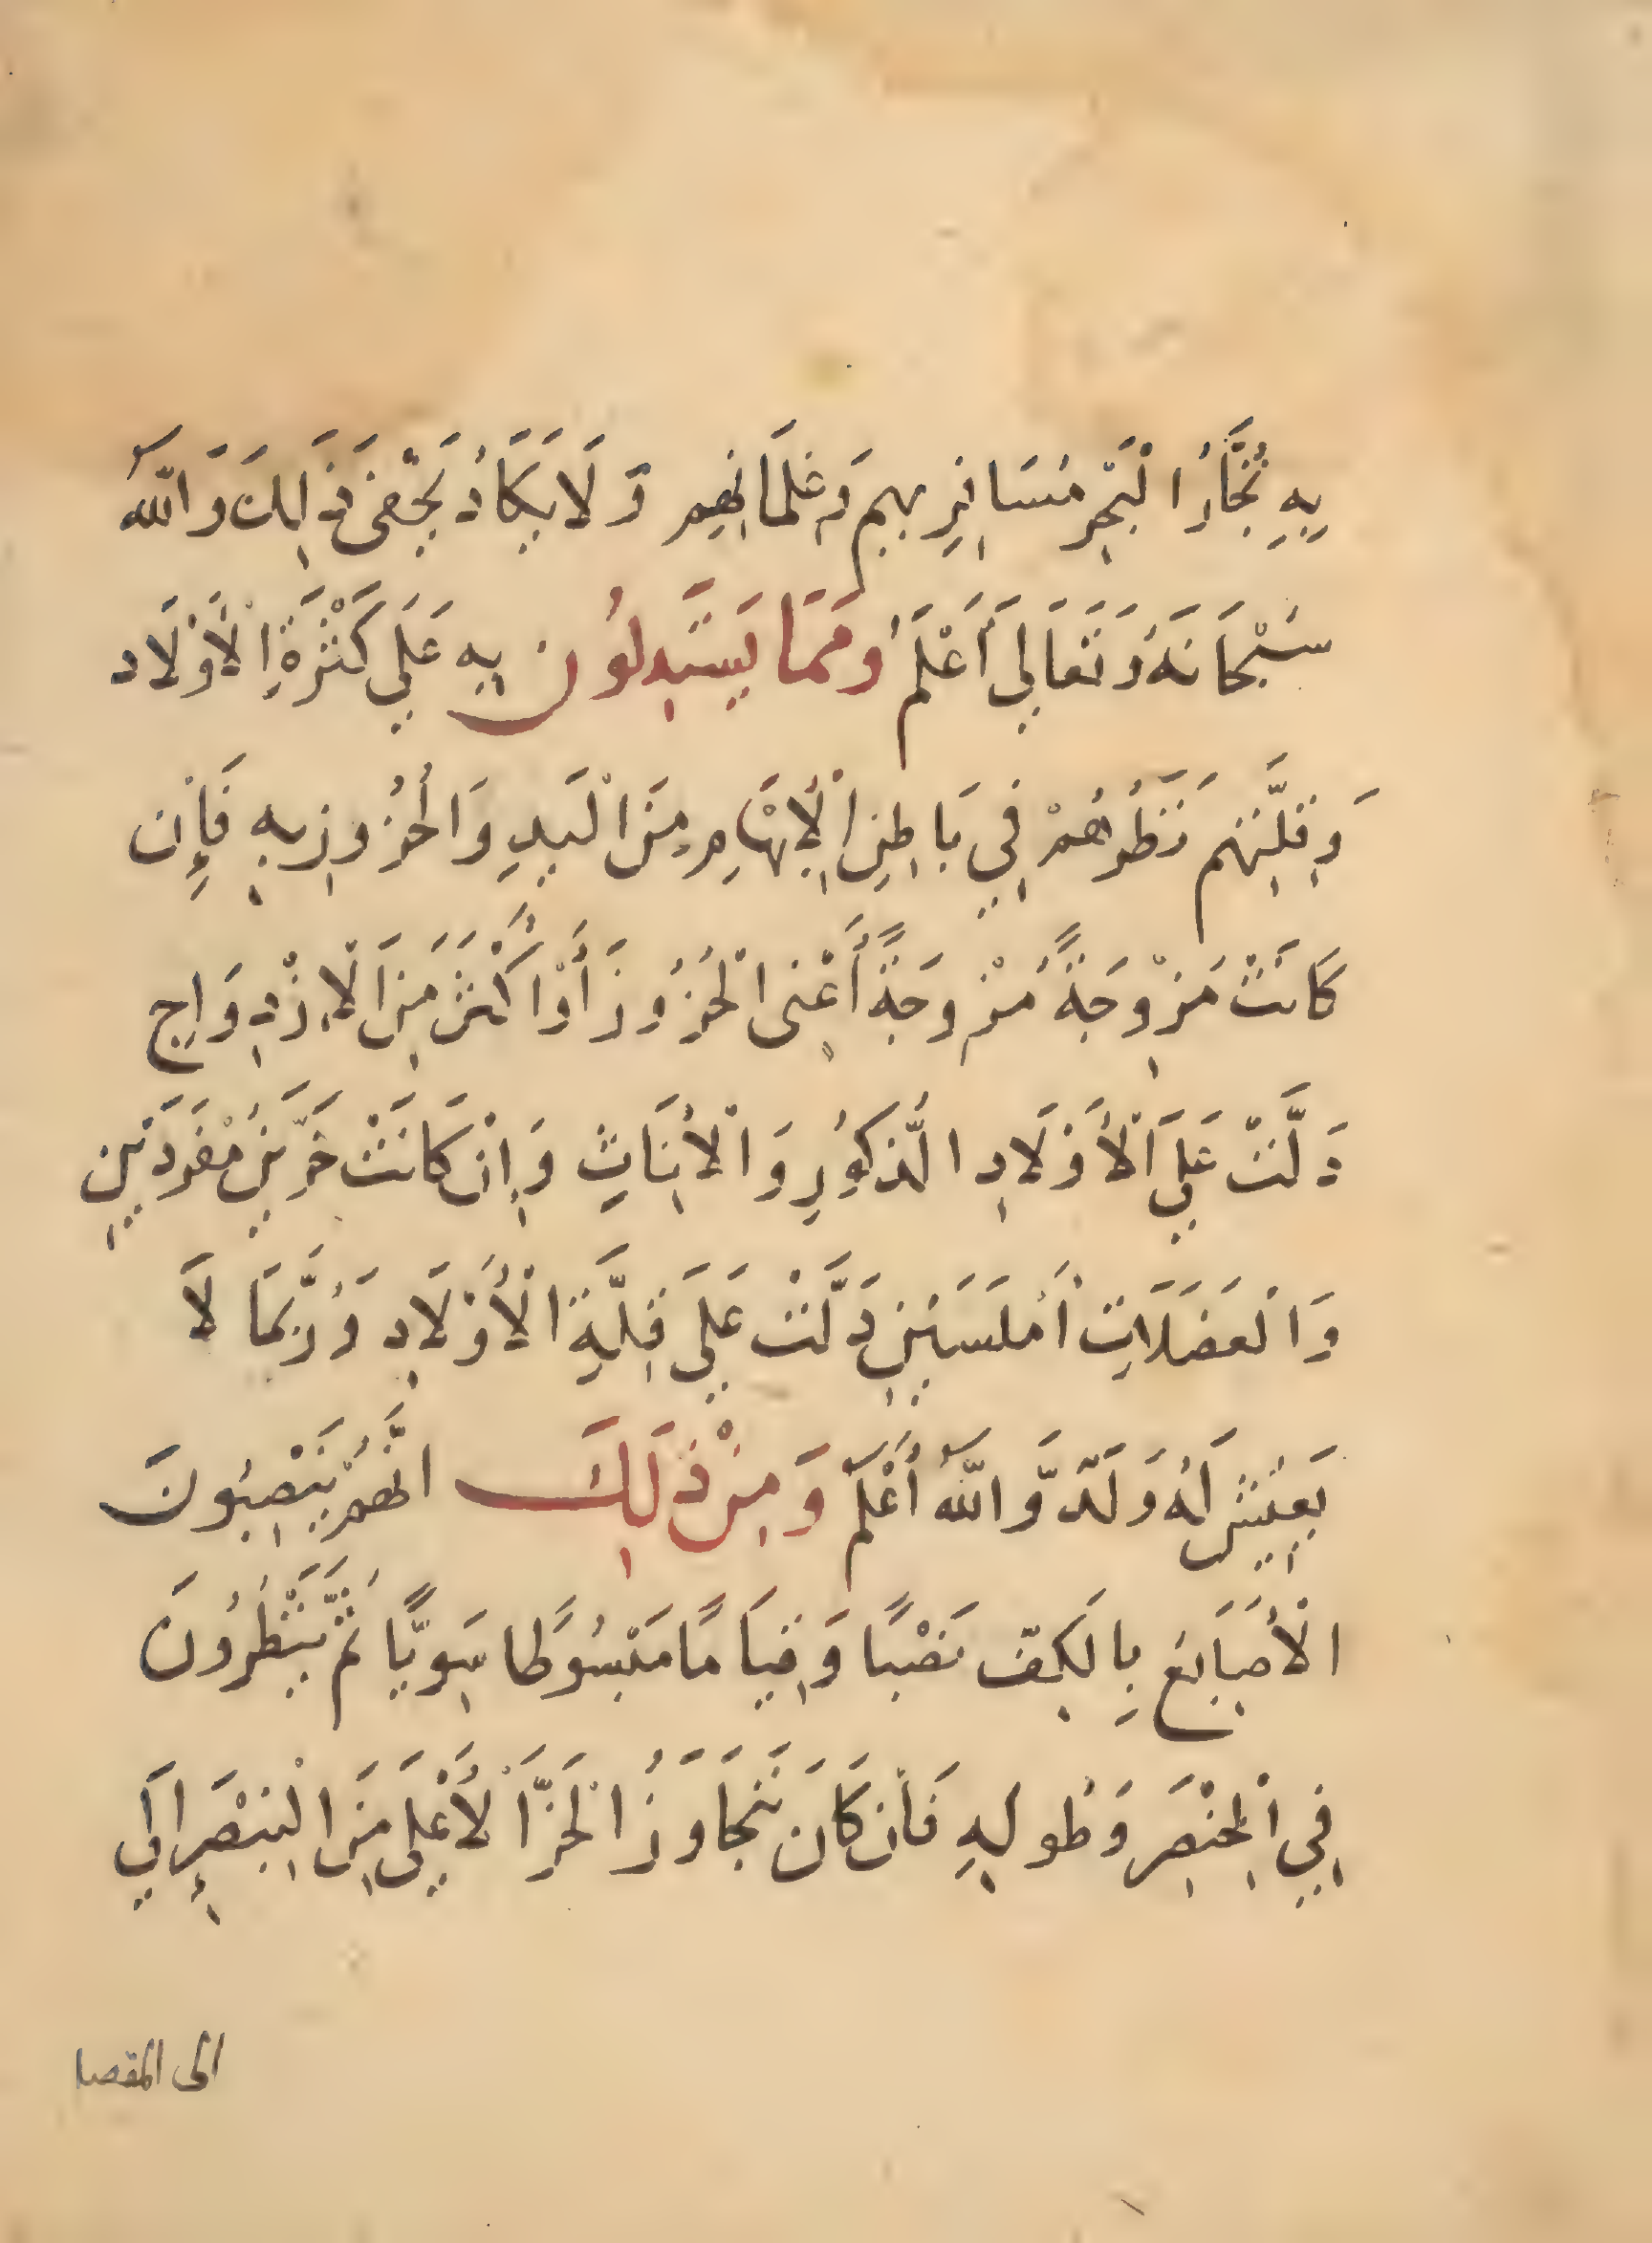 بِهِ تُجَّارُ الْبَحْرِ مُسَافِرِيهِم وَغِلمَانِهِم وَلَا يَكَادُ يَخْفَى ذَلِكَ وَاللّٰهُ
سُبْحَانَهُ وَتَعَالَى أَعْلَمُ وَمِمَّا يَسْتَدِلُّونَ بِهِ عَلَى كَثْرَةِ الْأَوْلَاد
وَقِلَّتِهِم نَظَرُهُمْ فِي بَاطِنِ الْإِبْهَامِ مِنَ الْيَدِ وَالْحُزُوزِ بِهِ فَإِن
كَانَتْ مُزْوِجَةً مُزْوِجَةً أَعْنِى الْحُزُوزَ أَوْ أَكْثَرَ مِنَ الْإِزْدِوَاجِ
دَلَّتْ عَلَى الْأَوْلَادِ الذُّكُورِ وَالْأُنَاثِ وَإِنْ كَانَتْ حَزَّيْنِ مُفْرَدَيْنِ
وَالْعَضَلَاتِ أَمْلَسَيْنِ دَلَّتْ عَلَى قِلَّةِ الْأَوْلَادِ وَرُبَّمَا لَا
يَعِيشُ لَهُ وَلَدٌ وَاللّٰهُ أَعْلَمُ وَمِنْ ذَلِكَ انَّهُمْ يَنْصِبُونَ
الْأَصَابِعَ بِالكَفِّ نَصْبًا وَقِيَامًا مَبْسُوطًا سَوِيًّا ثُمَّ يَنْظُرُونَ
فِي الْخِنْصِرِ وَطُولِهِ فَأن كَانَ تَجَاوَزُ الْحَزَّ الْأَعْلَى مِنَ الْبِنْصِرِ إِلَى
الى المقصا